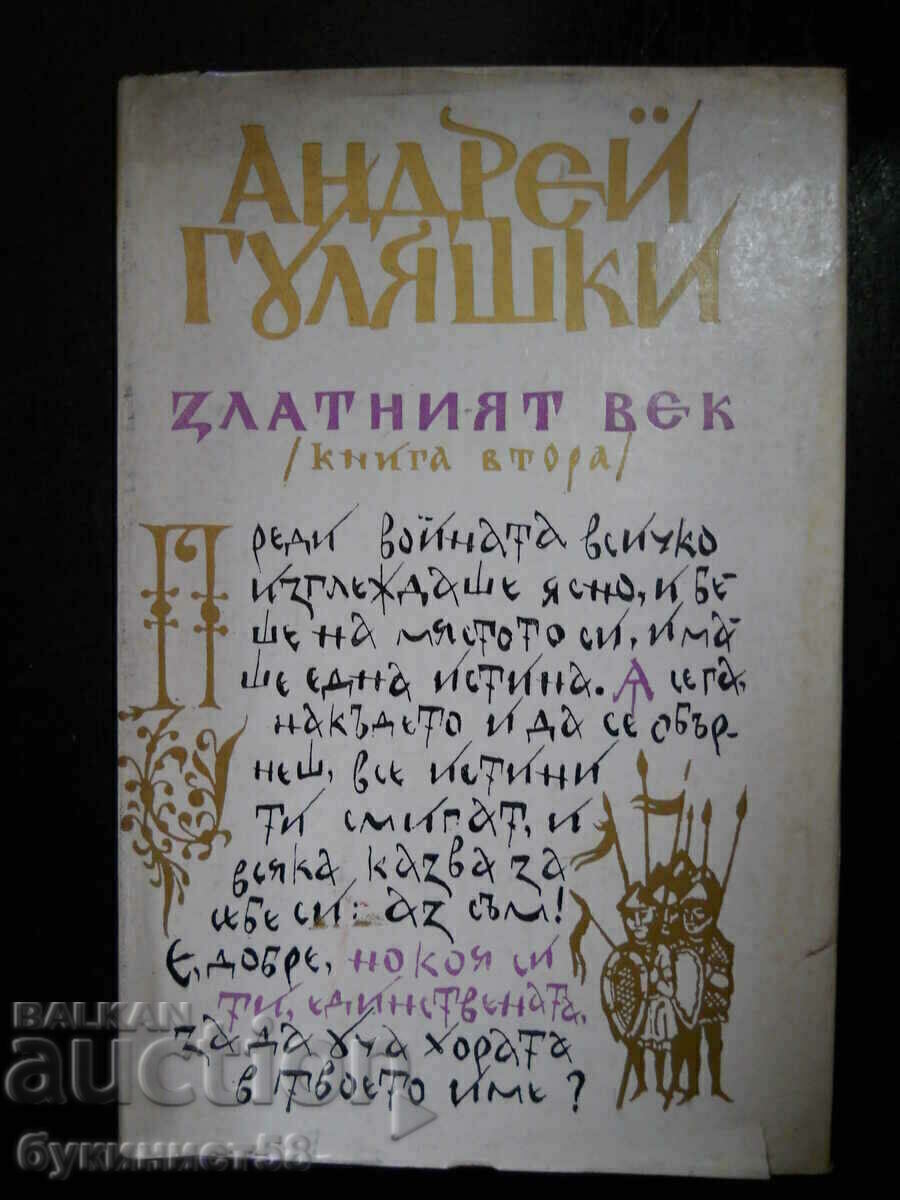 АНДРЕЙ
ГУЛЯШКИ
ЗЛАТНИЯТ ВЕК
/КНИГА ВТОРА/
Преди войната всичко
изглеждаше ясно, и бе-
ше на мястото си, има-
ше една истина. А сега,
накъдето и да се обър-
неш, все истини
ти смигат, и
всяка казва за
себе си: аз съм!
Е, добре, но коя си
ти, единствената,
за да уча хората
в твоето име?
BALKAN
auction
букинист58